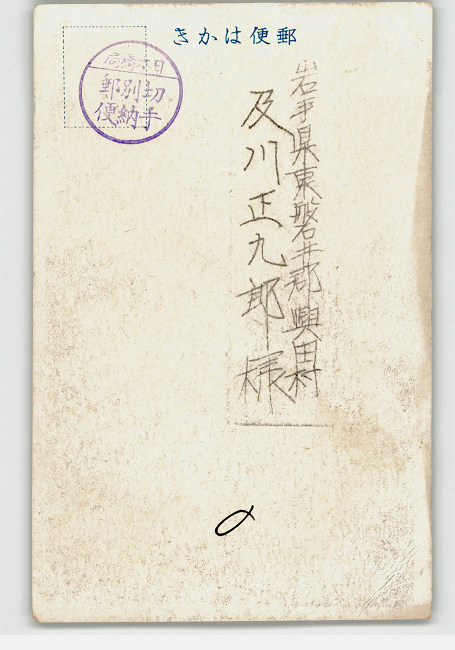 きかはに便郵
日本橋局
切手別納郵便
岩手県東磐井郡興田村
及川正九郎様
〆